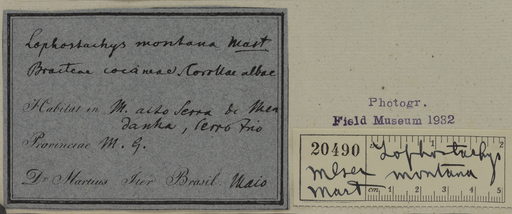 Lophostachys montana Mart
Bracteae coccineae, Corollae albae
Habitat in M. alto Serra de Men
danha, Cerro Frio
Provinciae M. G.
Dr. Martius Iter Brasil. Maio
Photogr.
Field Museum 1932
20490
Lophostachys
montana
Mart
cm
1
2
5